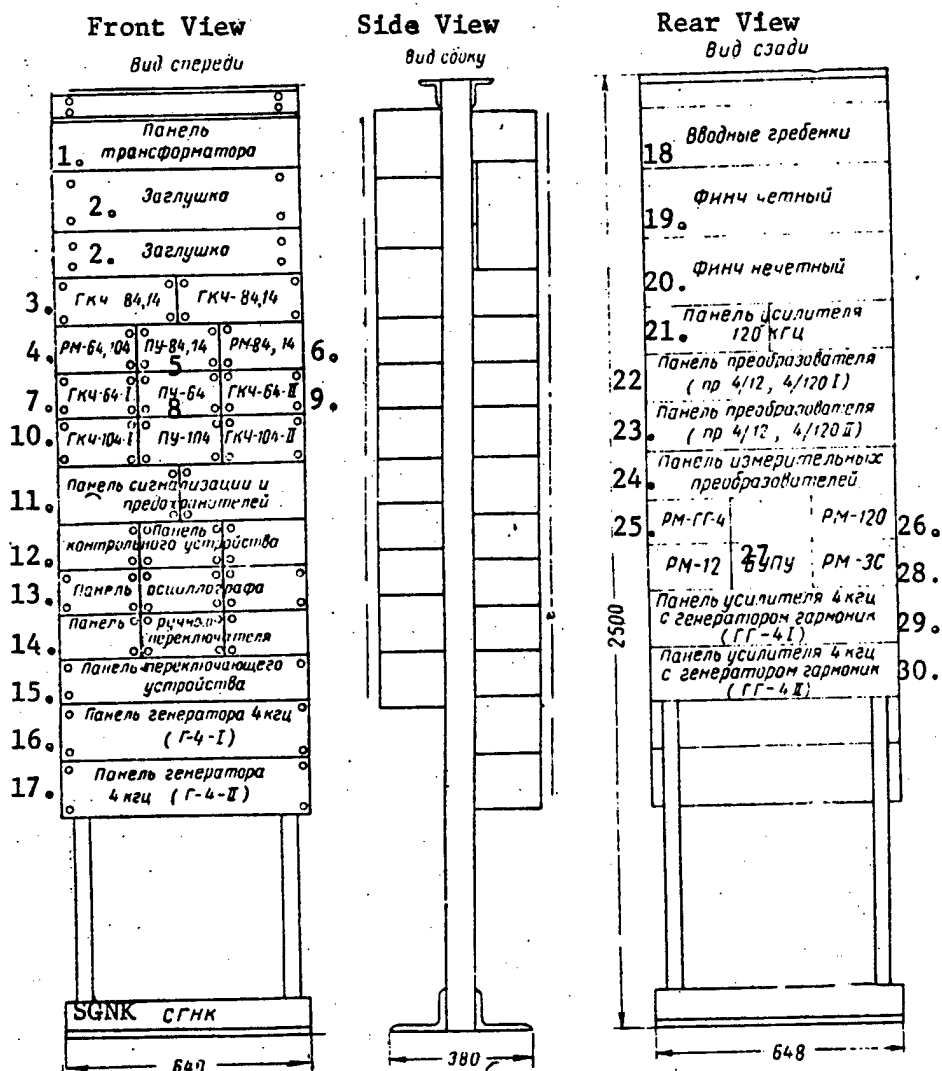 Front View
Вид спереди
Панель
1. трансформатора
2. Заглушка
2. Заглушка
3. ГКЧ 84,14 ГКЧ-84,14
4. РМ-64,104 ПУ-84,14 РМ-84,14 6.
5
7. ГКЧ-64-I ПУ-64 ГКЧ-64-II 9.
8
10. ГКЧ-104-I ПУ-104 ГКЧ-104-II
11. Панель сигнализации и
предохранителей
Панель
12. контрольного устройства
13. Панель осциллографа
14. Панель ручного
переключателя
15. Панель переключающего
устройства
16. Панель генератора 4 кгц
(Г-4-I)
17. Панель генератора
4 кгц (Г-4-II)
SGNK СГНК
Side View
Вид сбоку
380
Rear View
Вид сзади
18 Вводные гребенки
19. Финч четный
20. Финч нечетный
21. Панель усилителя
120 кгц
22 Панель преобразователя
(пр 4/12, 4/120 I)
23. Панель преобразователя
(пр 4/12, 4/120 II)
24. Панель измерительных
преобразователей
25. РМ-ГГ-4 РМ-120 26.
РМ-12 27 БУПУ РМ-3С 28.
Панель усилителя 4 кгц
с генератором гармоник 29.
(ГГ-4 I)
Панель усилителя 4 кгц
с генератором гармоник 30.
(ГГ-4 II)
2500
648